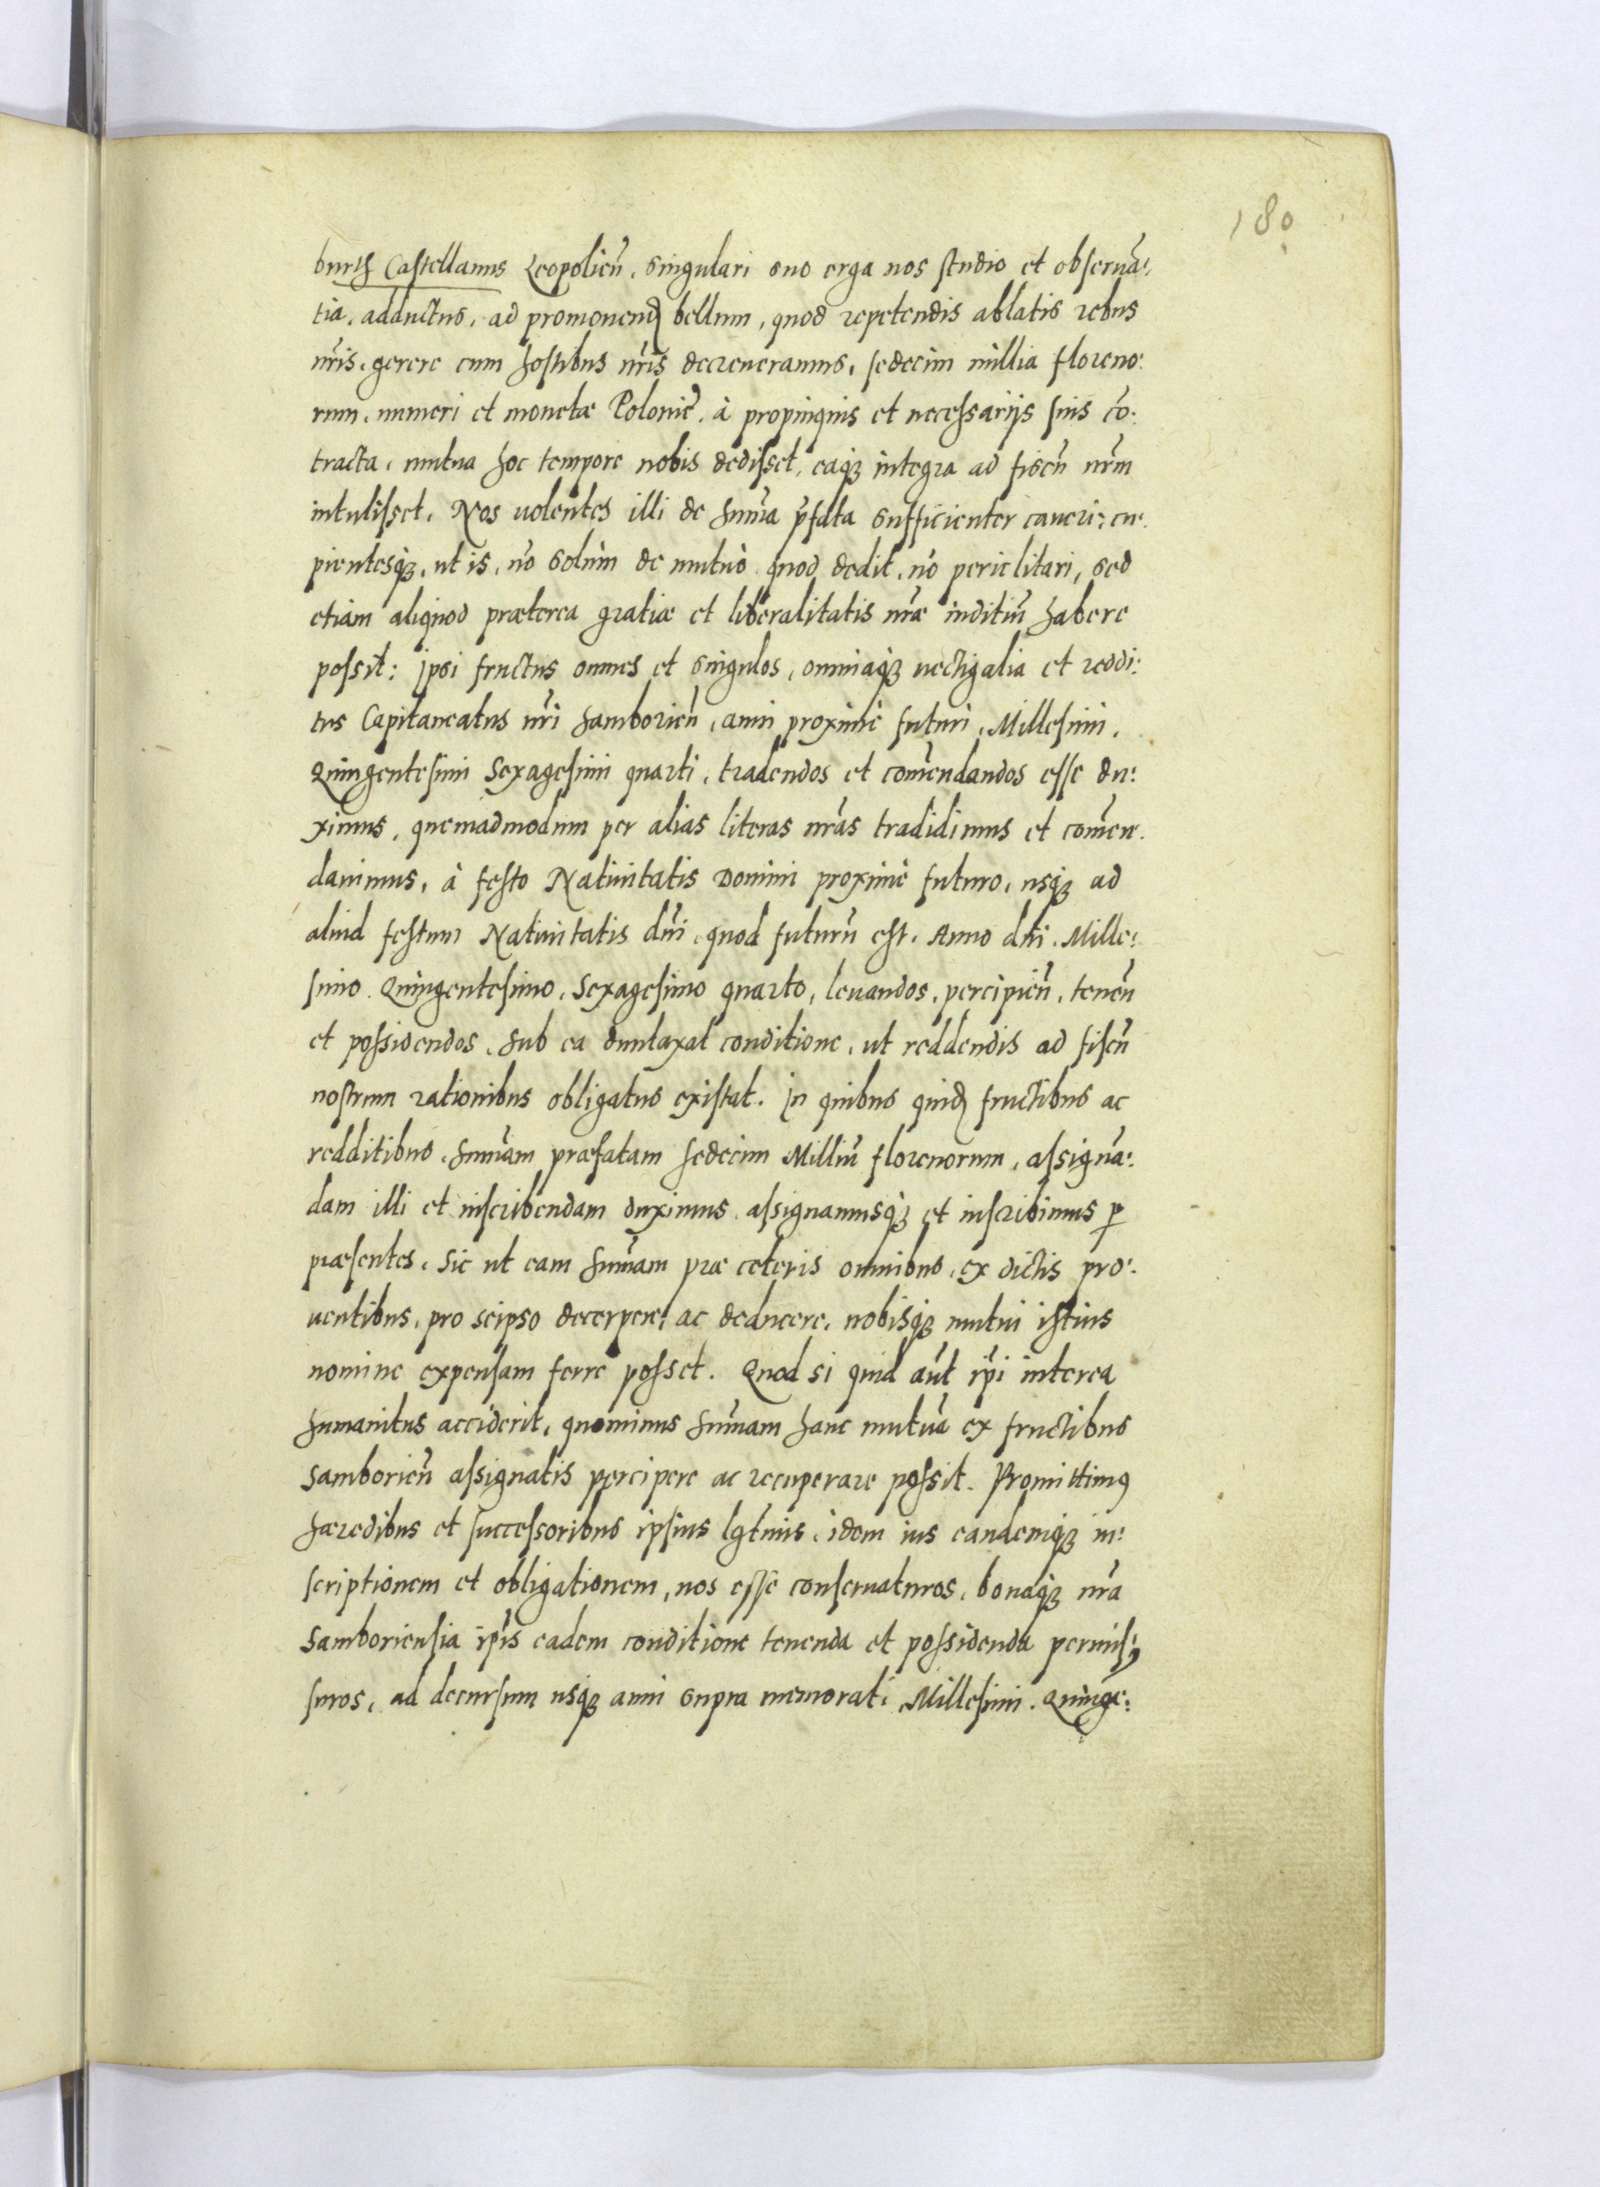 180
burth Castellanus Leopolień, singulari suo erga nos studio et obseruã:
tia, adductus, ad promouend bellum, quod repetendis ablatis rebus
nr̃is, gerere cum hostibus nr̃is decreueramus, sedecim millia floreno:
rum, numeri et monetæ Polonic̃, à propinquis et necessarijs suis cõ:
tracta, mutua hoc tempore nobis dedisset, eaq3 integra ad fiscũ nr̃m
intulisset. Nos uolentes illi de sum̃a p̃fata sufficienter caueri: cu:
pientesq3, ut is, nõ solùm de mutuò quod dedit, nõ periclitari, sed
etiam aliquod præterea gratiæ et liberalitatis nr̃æ inditiũ habere
possit: Ipsi fructus omnes et singulos, omniaq3 uectigalia et reddi:
tus Capitaneatus nr̃i Samborień, anni proximè futuri, Millesimi,
Quingentesimi Sexagesimi quarti, tradendos et com̃endandos esse du:
ximus, quemadmodum per alias literas nr̃as tradidimus et com̃en:
dauimus, à festo Natiuitatis Domini proximè futuro, usq3 ad
aliud festum Natiuitatis dñi, quod futurũ est, Anno dñi. Mille:
simo Quingentesimo, Sexagesimo quarto, leuandos, percipień, teneñ
et possidendos, sub ea duntaxat conditione, ut reddendis ad fiscũ
nostrum rationibus obligatus existat. In quibus quid fructibus ac
redditibus, sum̃am præfatam sedecim Milliũ florenorum, assignã:
dam illi et inscribendam duximus, assignamusq3 et inscribimus ꝑ
præsentes, sic ut eam sum̃am præ ceteris omnibus, ex dictis pro:
uentibus, pro seipso decerpere, ac deducere, nobisq3 mutui istius
nomine expensam ferre posset. Quod si quid aũt ip̃i interea
humanitus acciderit, quominus sum̃am hanc mutuã ex fructibus
Samborień assignatis percipere ac recuperare possit. Promittimꝰ
hæredibus et successoribus ipsius lgt̃mis, idem ius eandemq3 in:
scriptionem et obligationem, nos esse conseruaturos, bonaq3 nr̃a
Samboriensia ip̃is eadem conditione tenenda et possidenda permis:
suros, ad decursum usq3 anni supra memorati Millesimi. Quinge: